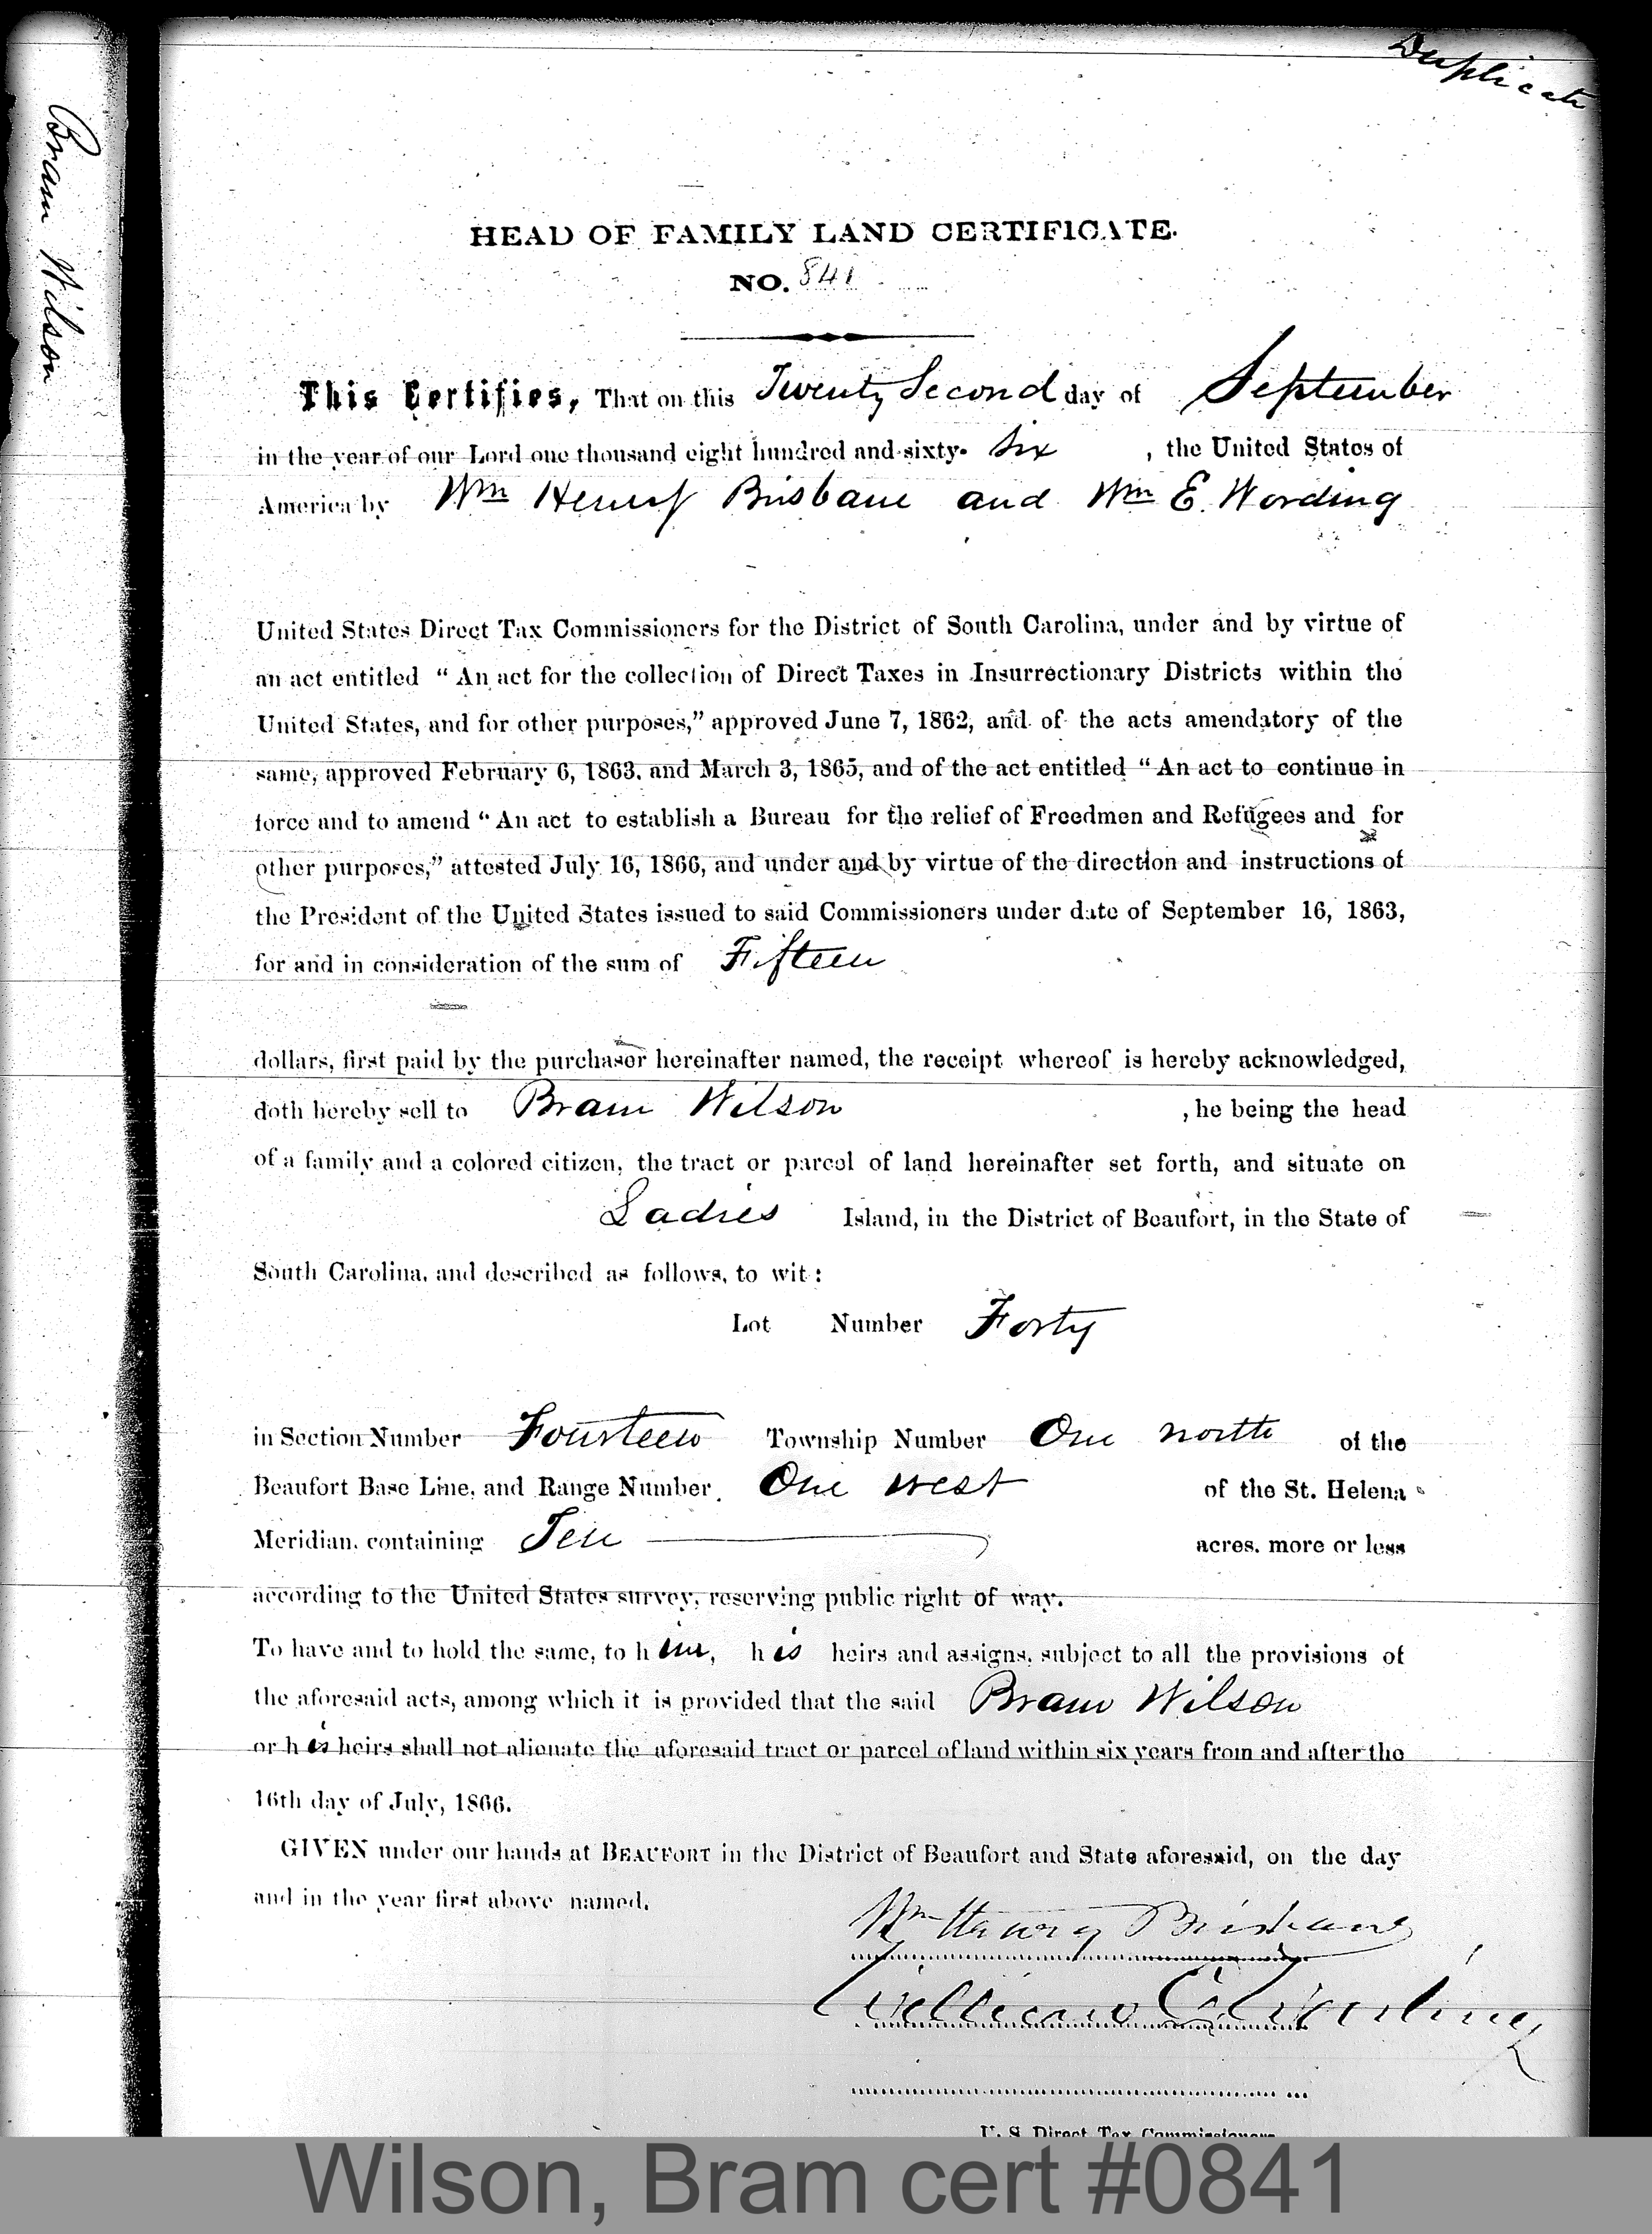 Duplicate
Bram Wilson
HEAD OF FAMILY LAND CERTIFICATE.
NO. 841
This Certifies, That on this Twenty Second day of September
in the year of our Lord one thousand eight hundred and sixty- six , the United States of
America by Wm Henry Brisbane and Wm E. Wording
United States Direct Tax Commissioners for the District of South Carolina, under and by virtue of
an act entitled "An act for the collection of Direct Taxes in Insurrectionary Districts within the
United States, and for other purposes," approved June 7, 1862, and of the acts amendatory of the
same, approved February 6, 1863, and March 3, 1865, and of the act entitled "An act to continue in
force and to amend "An act to establish a Bureau for the relief of Freedmen and Refugees and for
other purposes," attested July 16, 1866, and under and by virtue of the direction and instructions of
the President of the United States issued to said Commissioners under date of September 16, 1863,
for and in consideration of the sum of Fifteen
dollars, first paid by the purchaser hereinafter named, the receipt whereof is hereby acknowledged,
doth hereby sell to Bram Wilson , he being the head
of a family and a colored citizen, the tract or parcel of land hereinafter set forth, and situate on
Ladies Island, in the District of Beaufort, in the State of
South Carolina, and described as follows, to wit:
Lot Number Forty
in Section Number Fourteen Township Number One north of the
Beaufort Base Line, and Range Number One west of the St. Helena
Meridian, containing Ten acres, more or less
according to the United States survey, reserving public right of way.
To have and to hold the same, to him, his heirs and assigns, subject to all the provisions of
the aforesaid acts, among which it is provided that the said Bram Wilson
or his heirs shall not alienate the aforesaid tract or parcel of land within six years from and after the
16th day of July, 1866.
GIVEN under our hands at BEAUFORT in the District of Beaufort and State aforesaid, on the day
and in the year first above named.
Wm Henry Brisbane
William E. Wording
U. S. Direct Tax Commissioners
Wilson, Bram cert #0841